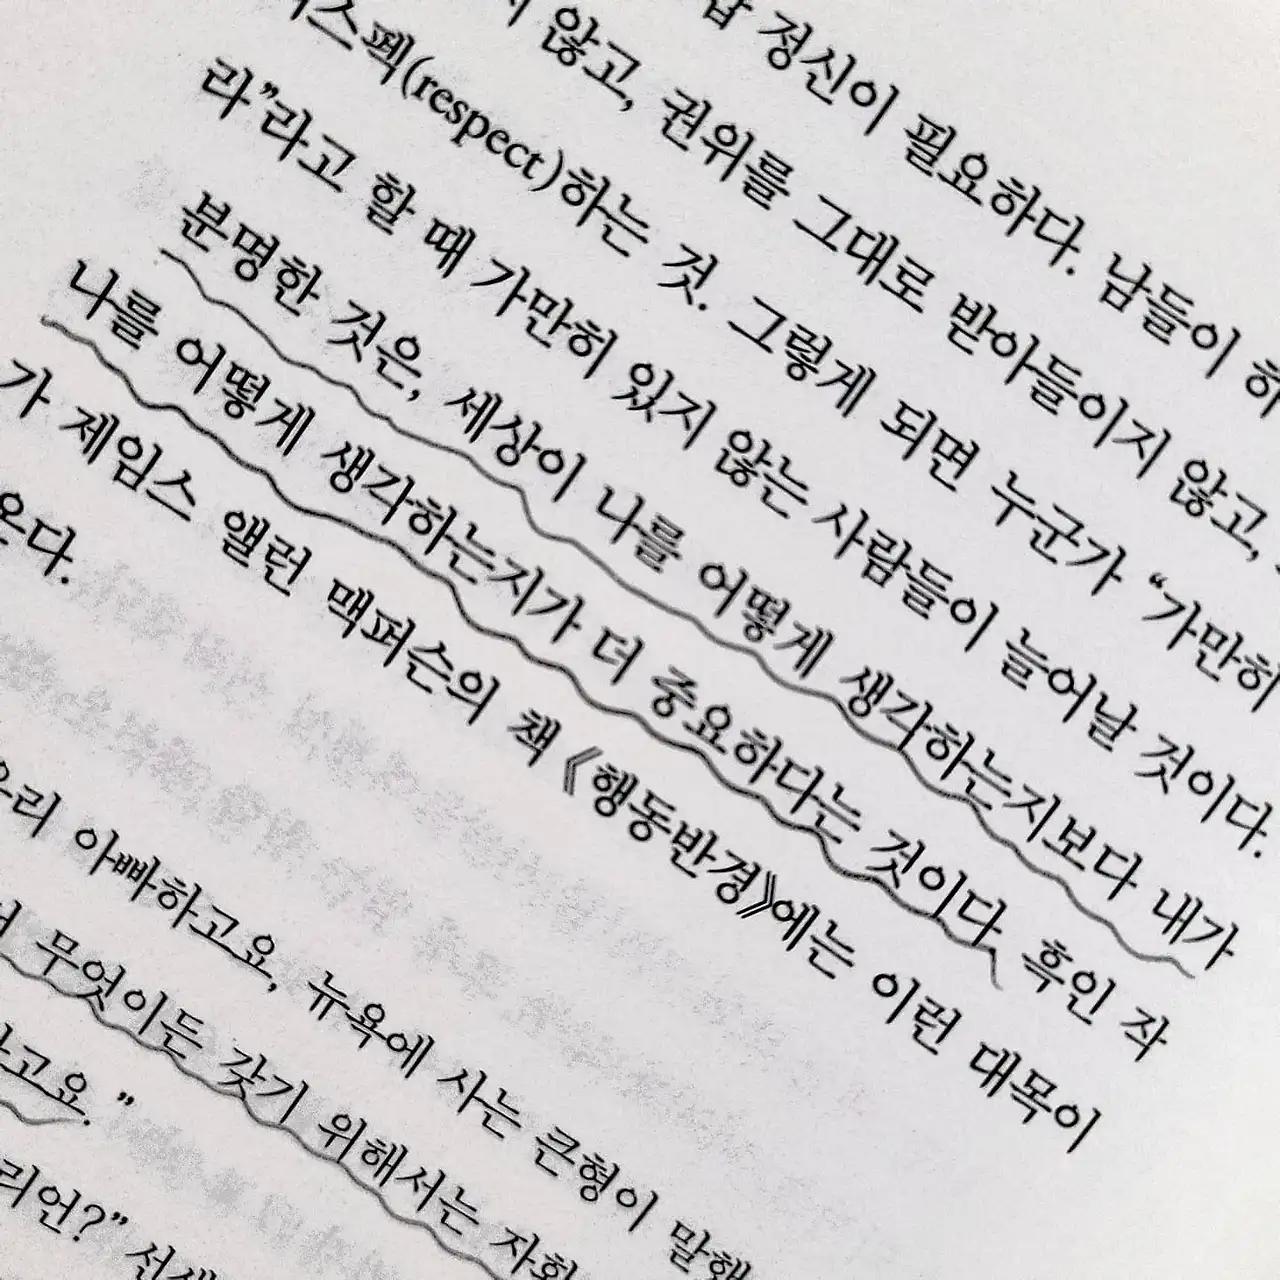 정신이 필요하다. 남들이
않고, 권위를 그대로 받아들이지 않고,
스펙(respect)하는 것. 그렇게 되면 누군가 “가만히
라”라고 할 때 가만히 있지 않는 사람들이 늘어날 것이다.
분명한 것은, 세상이 나를 어떻게 생각하는지보다 내가
나를 어떻게 생각하는지가 더 중요하다는 것이다. 흑인 작
가 제임스 앨런 맥퍼슨의 책 《행동반경》에는 이런 대목이
온다.
우리 아빠하고요, 뉴욕에 사는 큰형이 말했
무엇이든 갖기 위해서는
고요.”
리언?” 선생